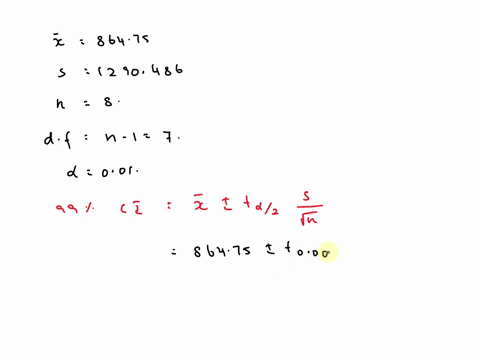 x̄ = 864.75
s = 1290.486
n = 8.
d.f = n-1 = 7.
α = 0.01.
99% CI = x̄ ± tα/2 s/√n
= 864.75 ± t0.00